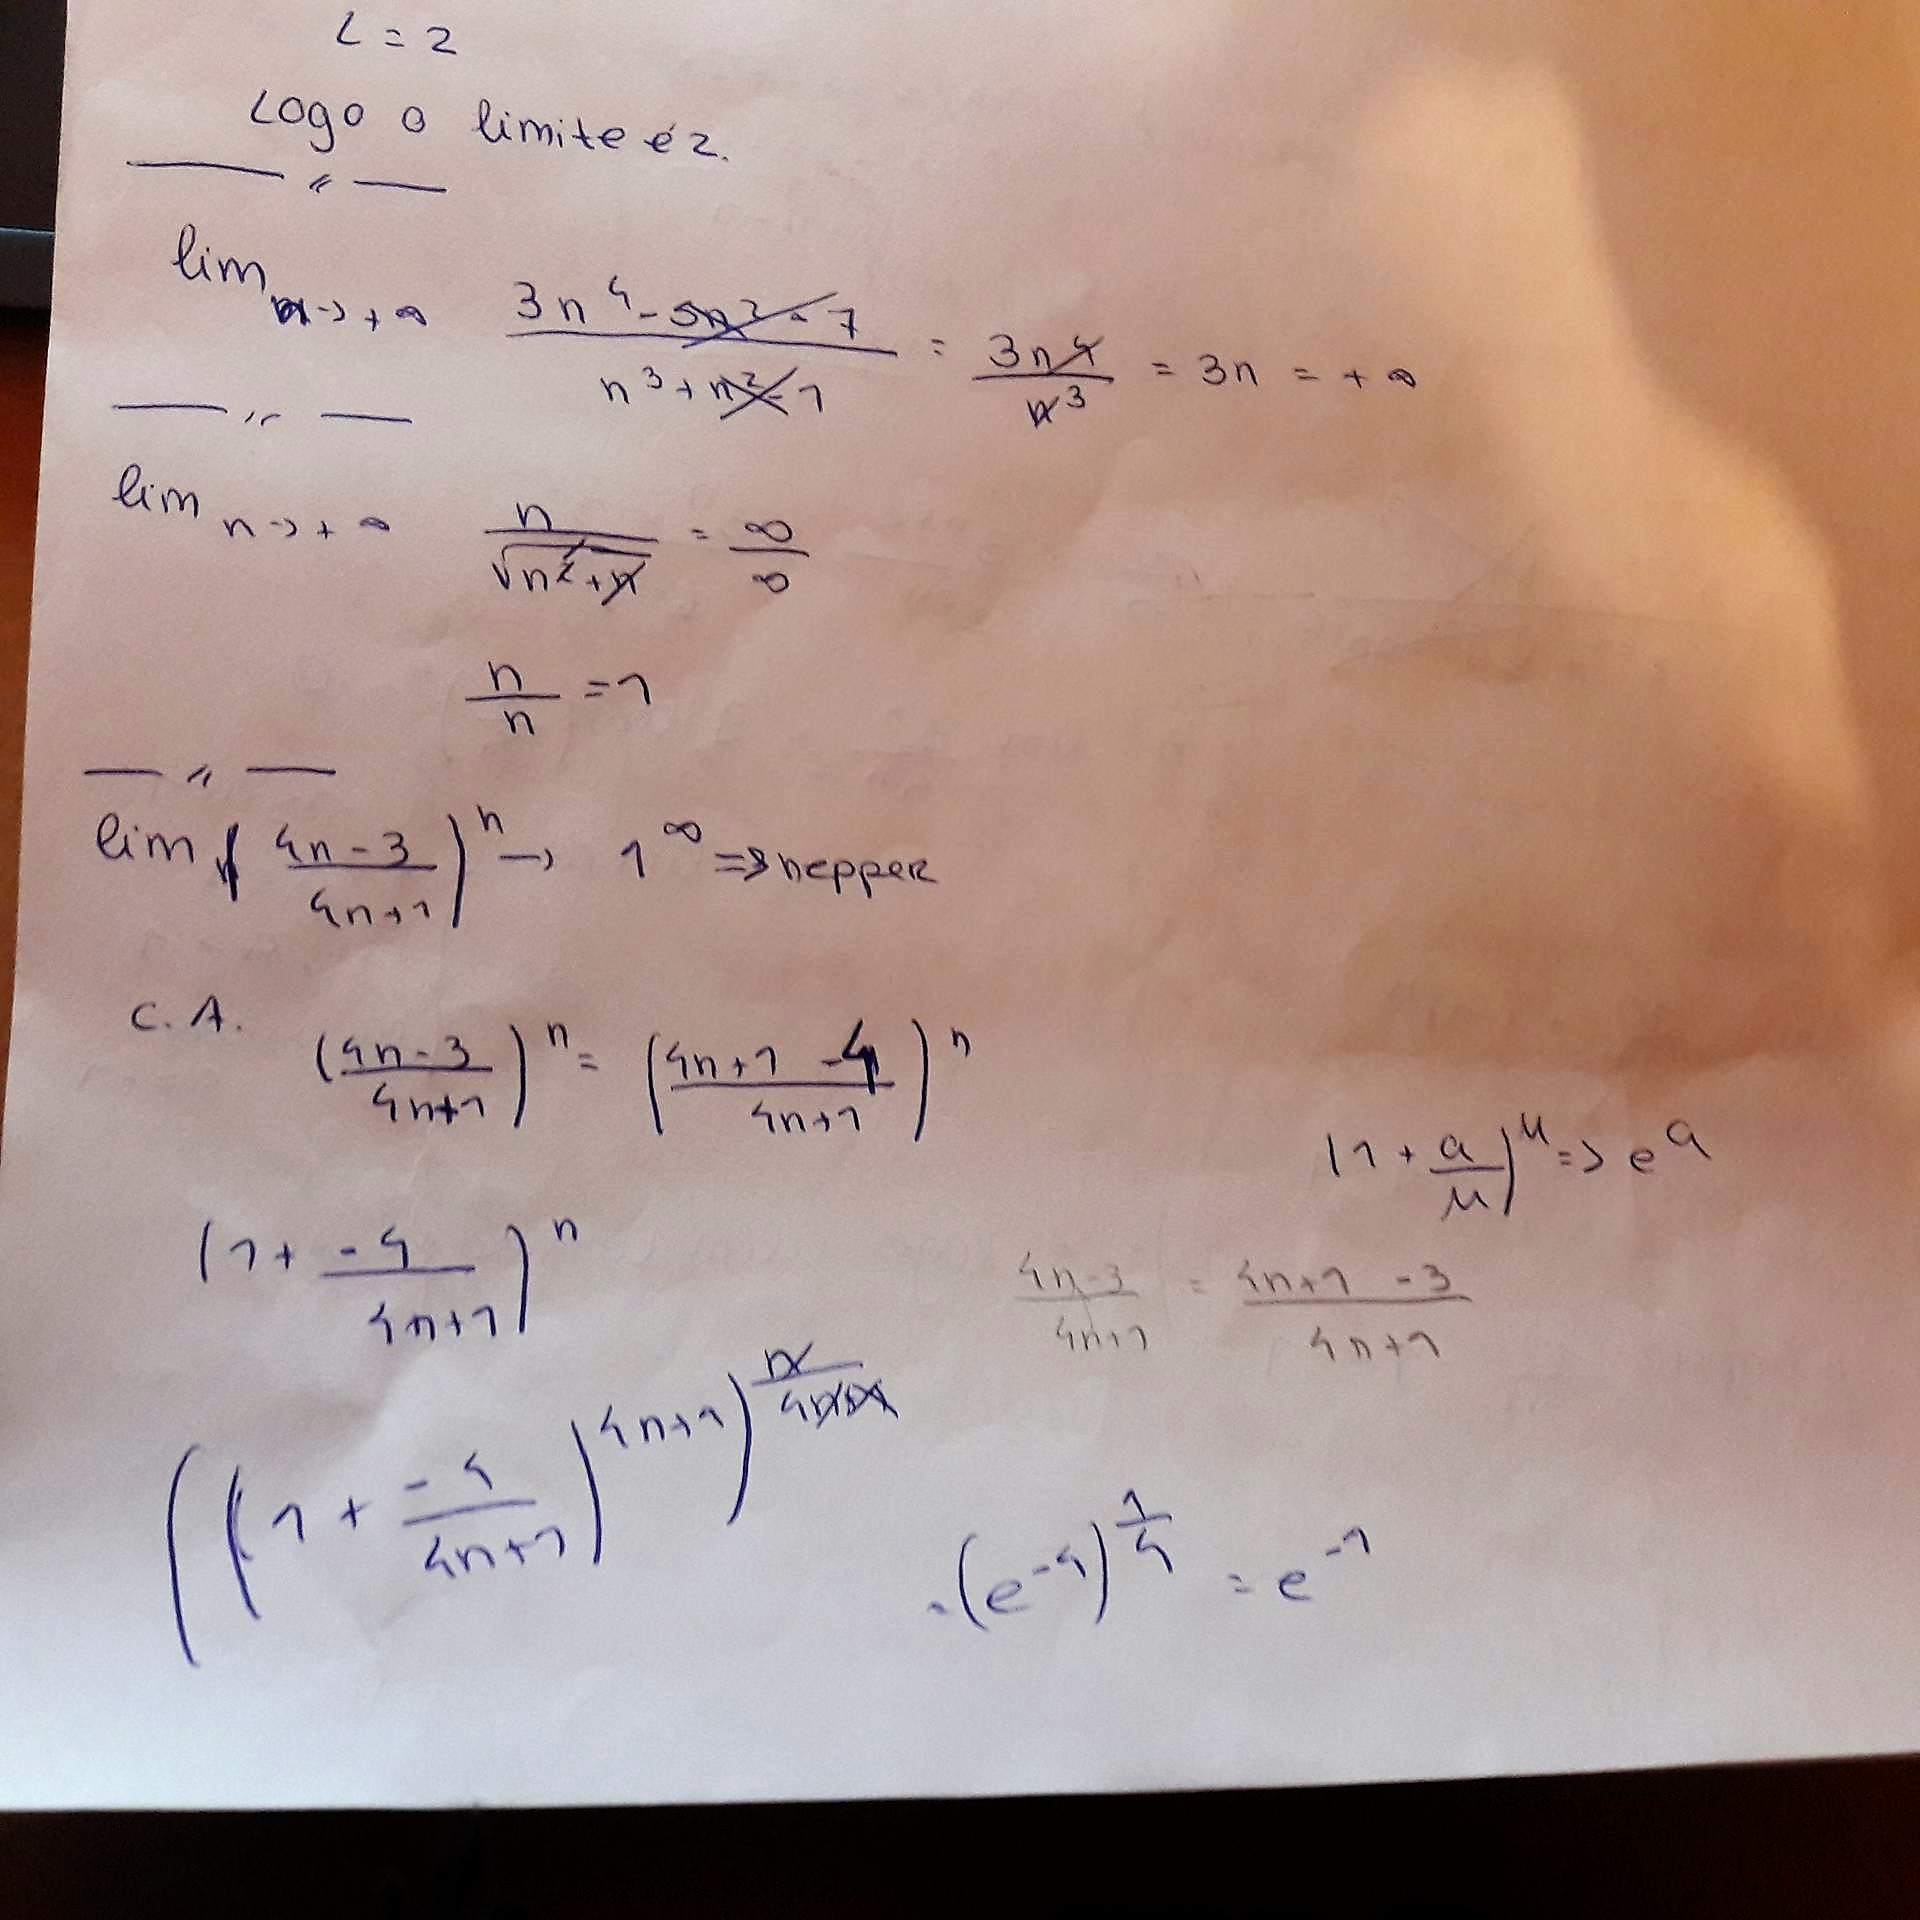 L = 2
Logo o limite é 2.
lim n→+∞ (3n⁴ - 5n² - 7)/(n³ + n² - 1) = 3n⁴/n³ = 3n = +∞
lim n→+∞ n/√(n² + n) = ∞/∞
n/n = 1
lim ((4n - 3)/(4n + 1))ⁿ → 1^∞ => nepper
C.A.
((4n - 3)/(4n + 1))ⁿ = ((4n + 1 - 4)/(4n + 1))ⁿ
(1 + a/u)^u => e^a
(1 + -4/(4n + 1))ⁿ
(4n - 3)/(4n + 1) = (4n + 1 - 3)/(4n + 1)
((1 + -4/(4n + 1))^(4n + 1))^(n/(4n + 1))
= (e^-4)^(1/4) = e^-1